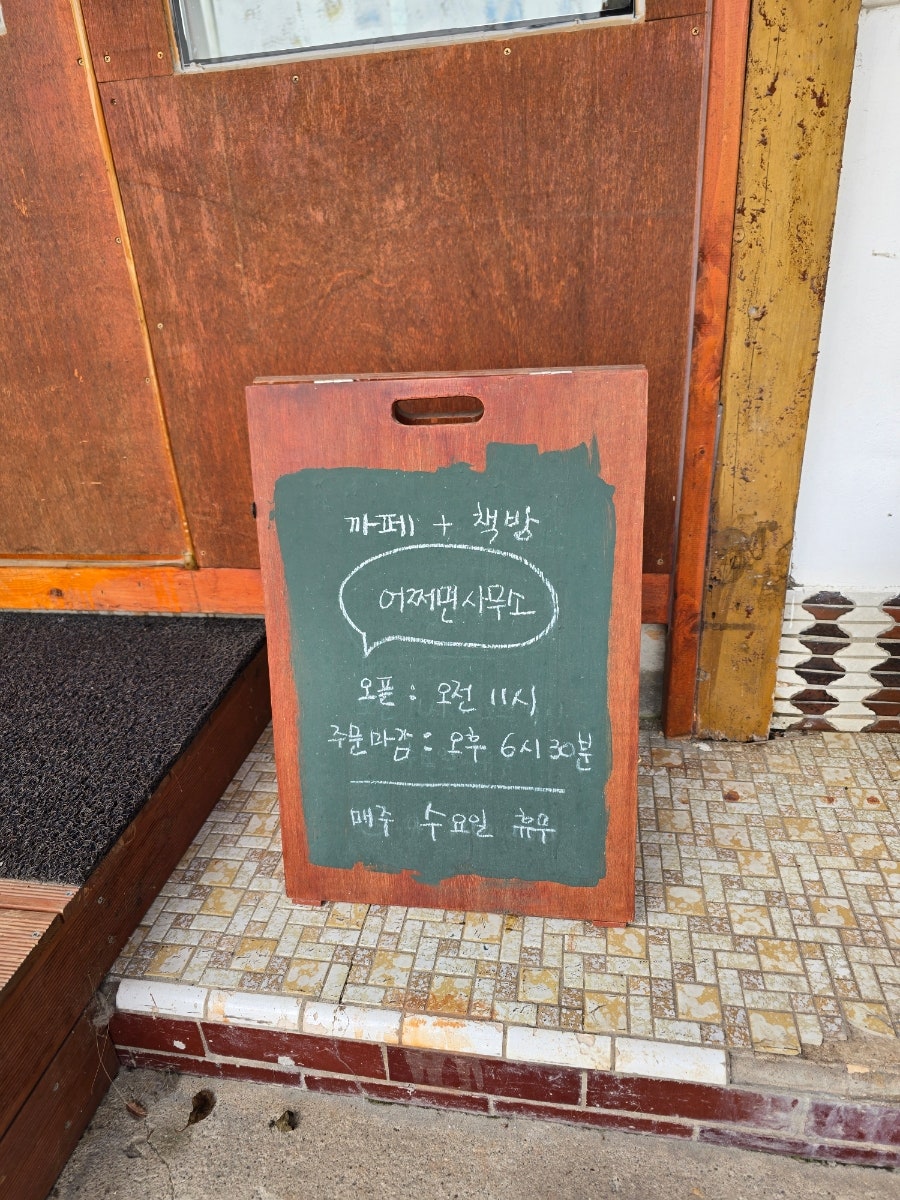 까페 + 책방
어쩌면사무소
오픈 : 오전 11시
주문마감 : 오후 6시 30분
매주 수요일 휴무